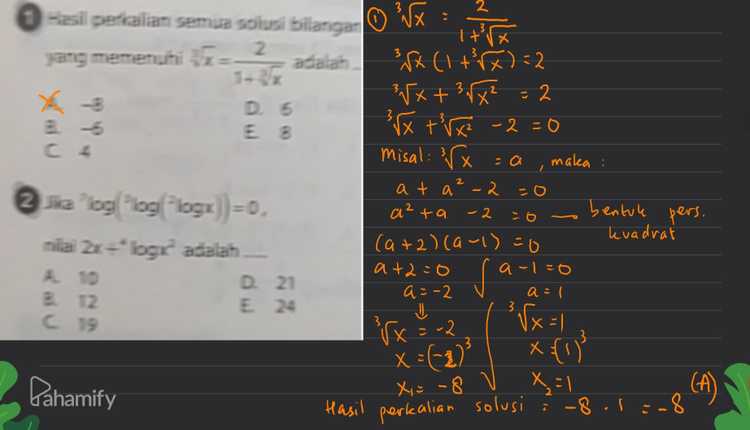 1 Hasil perkalian semua solusi bilangan
yang memenuhi ∛x = 2/(1+∛x) adalah
A. -8
B. -6
C. 4
D. 6
E. 8
2 Jika ²log(²log(²logx)) = 0,
nilai 2x + ⁴logx² adalah ....
A. 10
B. 12
C. 19
D. 21
E. 24
① ∛x = 2/(1+∛x)
∛x (1 + ∛x) = 2
∛x + ∛x² = 2
∛x + ∛x² - 2 = 0
Misal: ∛x = a, maka :
a + a² - 2 = 0
a² + a - 2 = 0 → bentuk pers.
kuadrat
(a+2)(a-1) = 0
a+2=0 a-1=0
a=-2 a=1
⇓
∛x = -2 ∛x = 1
x = (-2)³ x = (1)³
x₁ = -8 V x₂ = 1
Hasil perkalian solusi = -8 . 1 = -8 (A)
Pahamify